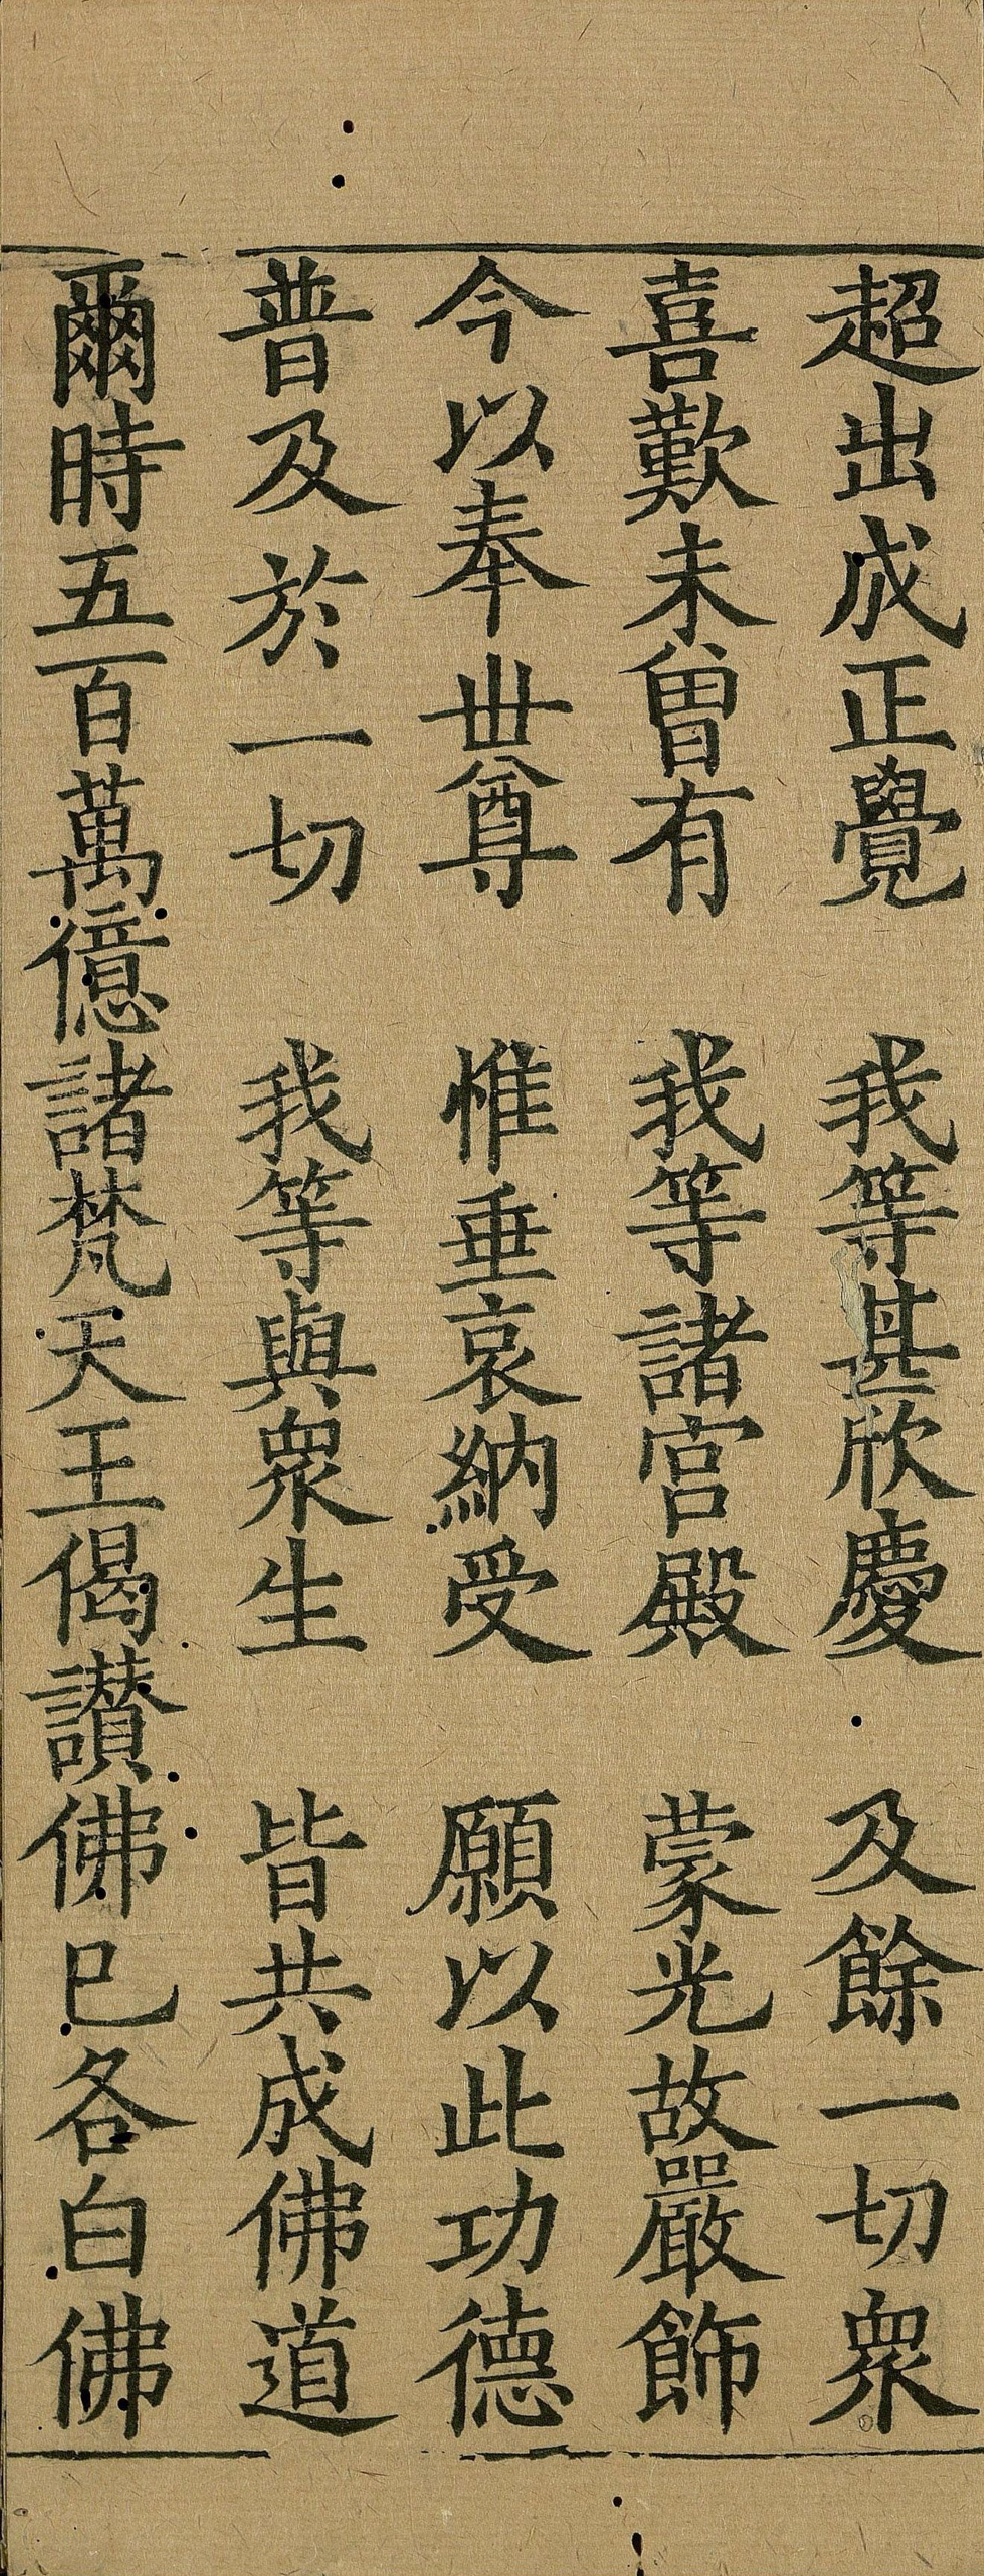 超出成正覺　我等甚欣慶　及餘一切衆
喜歎未曾有　我等諸宮殿　蒙光故嚴飾
今以奉世尊　惟垂哀納受　願以此功德
普及於一切　我等與衆生　皆共成佛道
爾時五百萬億諸梵天王偈讃佛已各白佛